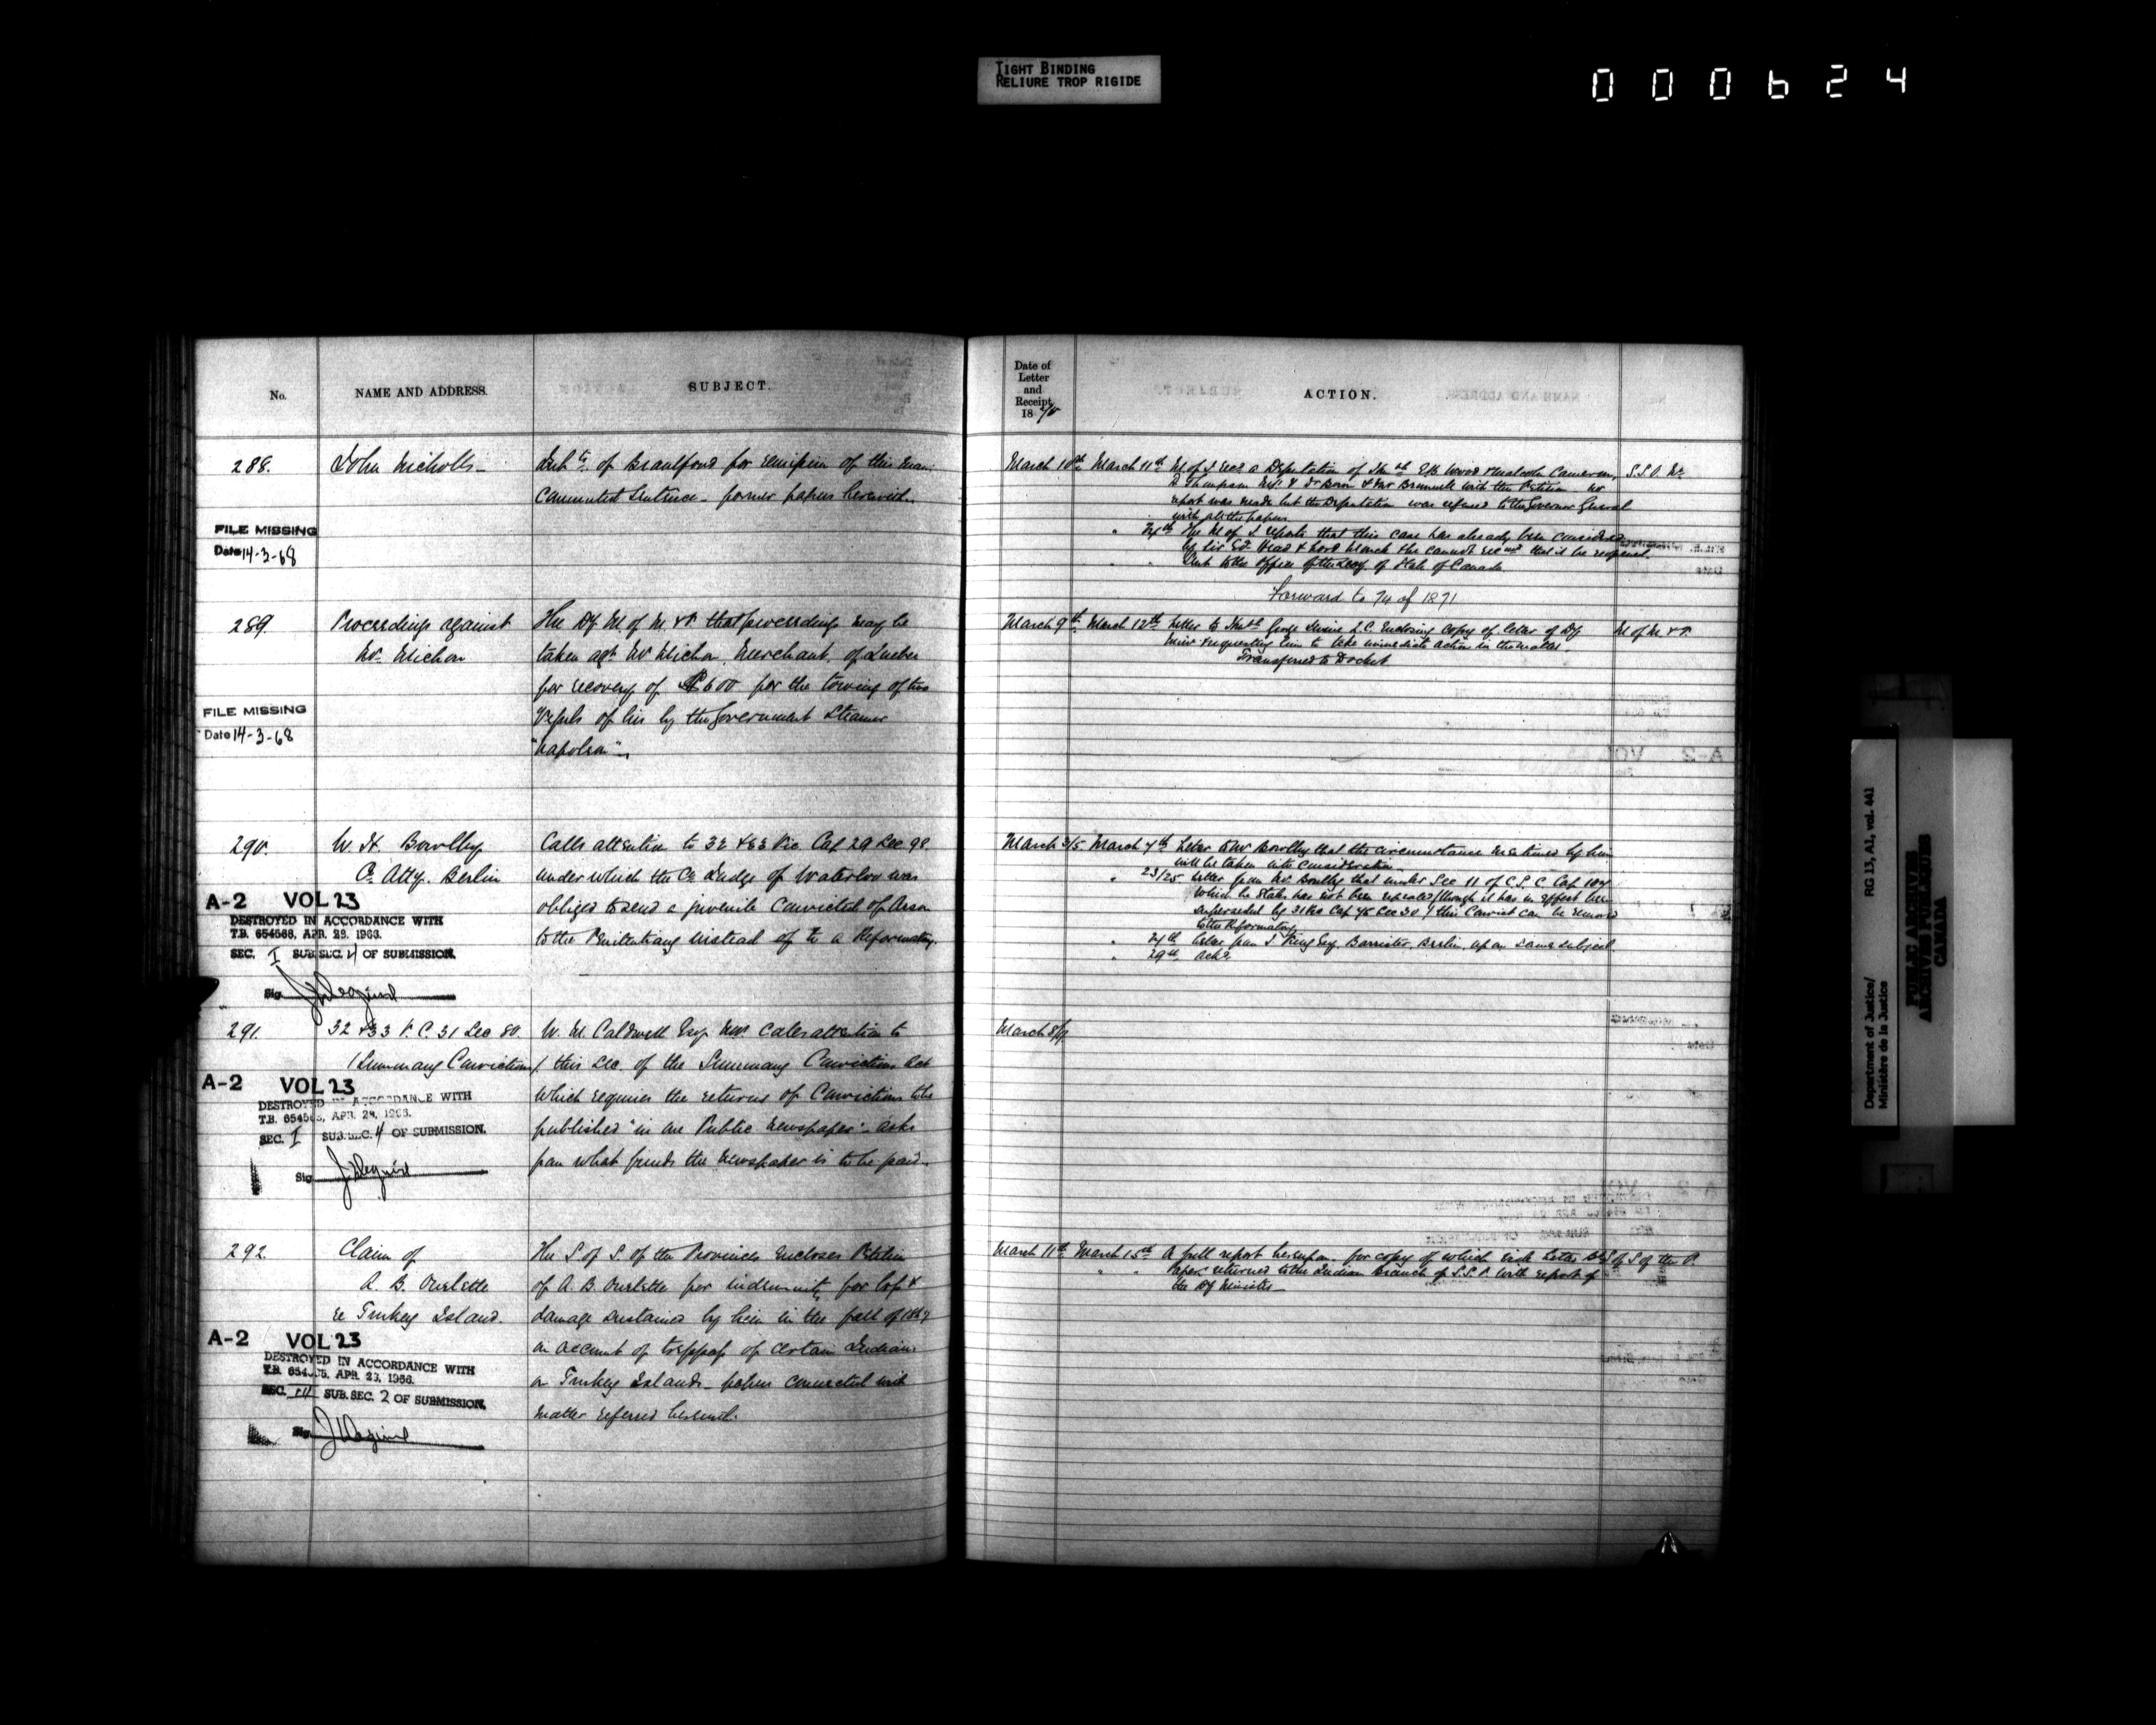 TIGHT BINDING
RELIURE TROP RIGIDE
000624
No.
NAME AND ADDRESS.
SUBJECT.
288.
John Nicholls
Inhts. of Brantford for remission of this man
commuted sentence - former papers herewith.
FILE MISSING
Date 14-3-68
289.
Proceedings against
Mr. Michon
The Dy M of M & F. that proceedings may be
taken agt. Mr Michon, Merchant, of Quebec
for recovery of $600 for the towing of two
Vessels of his by the Government Steamer
"Napoleon"
FILE MISSING
Date 14-3-68
290.
W. H. Bowlby
Co. Atty. Berlin
Calls attention to 32 & 33 Vic. Cap 29 Sec 98.
under which the Co. Judge of Waterloo was
obliged to send a juvenile convicted of Arson
to the Penitentiary instead of to a Reformatory.
A-2 VOL 23
DESTROYED IN ACCORDANCE WITH
T.B. 654566, APR. 29, 1966.
SEC. I SUB. SEC. 4 OF SUBMISSION.
Sig.
291.
32 & 33 V. C. 31 Sec 80.
(Summary Convictions)
W. M. Caldwell Esq. calls attention to
this Sec. of the Summary Convictions Act
which requires the returns of Convictions to be
published "in one Public Newspaper" - asks
from what funds the newspaper is to be paid.
A-2 VOL 23
DESTROYED IN ACCORDANCE WITH
T.B. 654566, APR. 29, 1966.
SEC. I SUB. SEC. 4 OF SUBMISSION.
Sig.
292.
Claim of
A. B. Ouelette
re Turkey Island.
The S of S. of the Provinces encloses Petition
of A. B. Ouelette for indemnity for loss &
damage sustained by him in the fall of 1867
on account of trespass of certain Indians
on Turkey Islands - papers connected with
matter referred herewith.
A-2 VOL 23
DESTROYED IN ACCORDANCE WITH
T.B. APR. 29, 1966.
SEC. SUB. SEC. 2 OF SUBMISSION.
Sig.
Date of
Letter
and
Receipt,
1870
ACTION.
March 10th March 11th M of J recd a Deputation of Honble E.B. Wood & Malcolm Cameron, S.S.O. Wt
D Thompson M.P. & Dr Bown & Mr with the Petition. no
report was made but the Deputation was referred to the Governor General
with all the papers
" 24th The M of J. reports that this case has already been considered
by Sir Ed. Head & Lord Monck & he cannot recmd that it be reopened.
" " Sent to the Office of the Secy. of State of Canada
Forward to 74 of 1871
March 9th March 12th Letter to Honble Geoge Irvine Q.C. Enclosing Copy of letter of Dy M of M & F.
Minr & requesting him to take immediate action in the matter
Transferred to Docket
March 3/5 March 7th Letter to Mr Bowlby that the circumstance mentioned by him
will be taken into consideration
" 23/25 Letter from Mr. Bowlby that under Sec 11 of C.S.C. Cap 107
which he states has not been repealed (though it has in effect been
superseded by 31 Vic Cap 75 Sec 30) this Convict can be removed
to the Reformatory
" 24th Letter from J. King Esq. Barrister. Berlin. upon same subject.
" 29th Ackd.
March 8/9
March 11th March 15th A full report hereupon. for copy of which vide Letter Bk S of S of the P.
" " Papers returned to the Indian Branch of S.S.P. with report of
the Dy Minister
Department of Justice/
Ministère de la Justice
RG 13, A1, vol. 441
PUBLIC ARCHIVES
ARCHIVES PUBLIQUES
CANADA